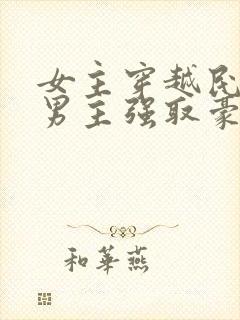 女主穿越民
男主强取豪
和華燕